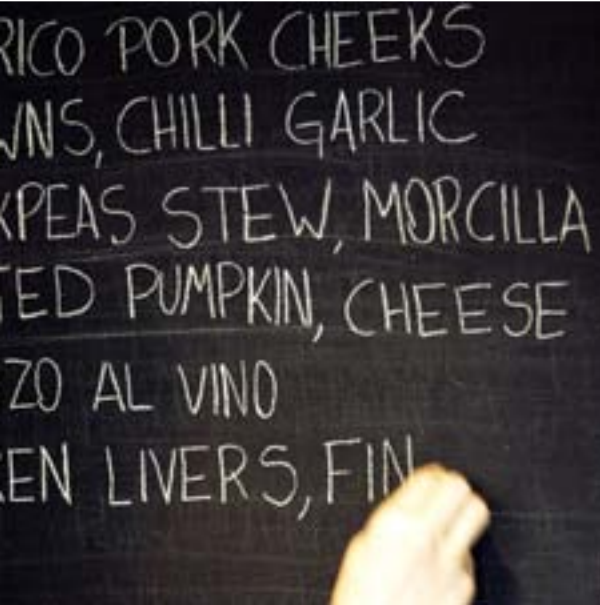 RICO PORK CHEEKS
WNS, CHILLI GARLIC
KPEAS STEW, MORCILLA
TED PUMPKIN, CHEESE
ZO AL VINO
KEN LIVERS, FIN